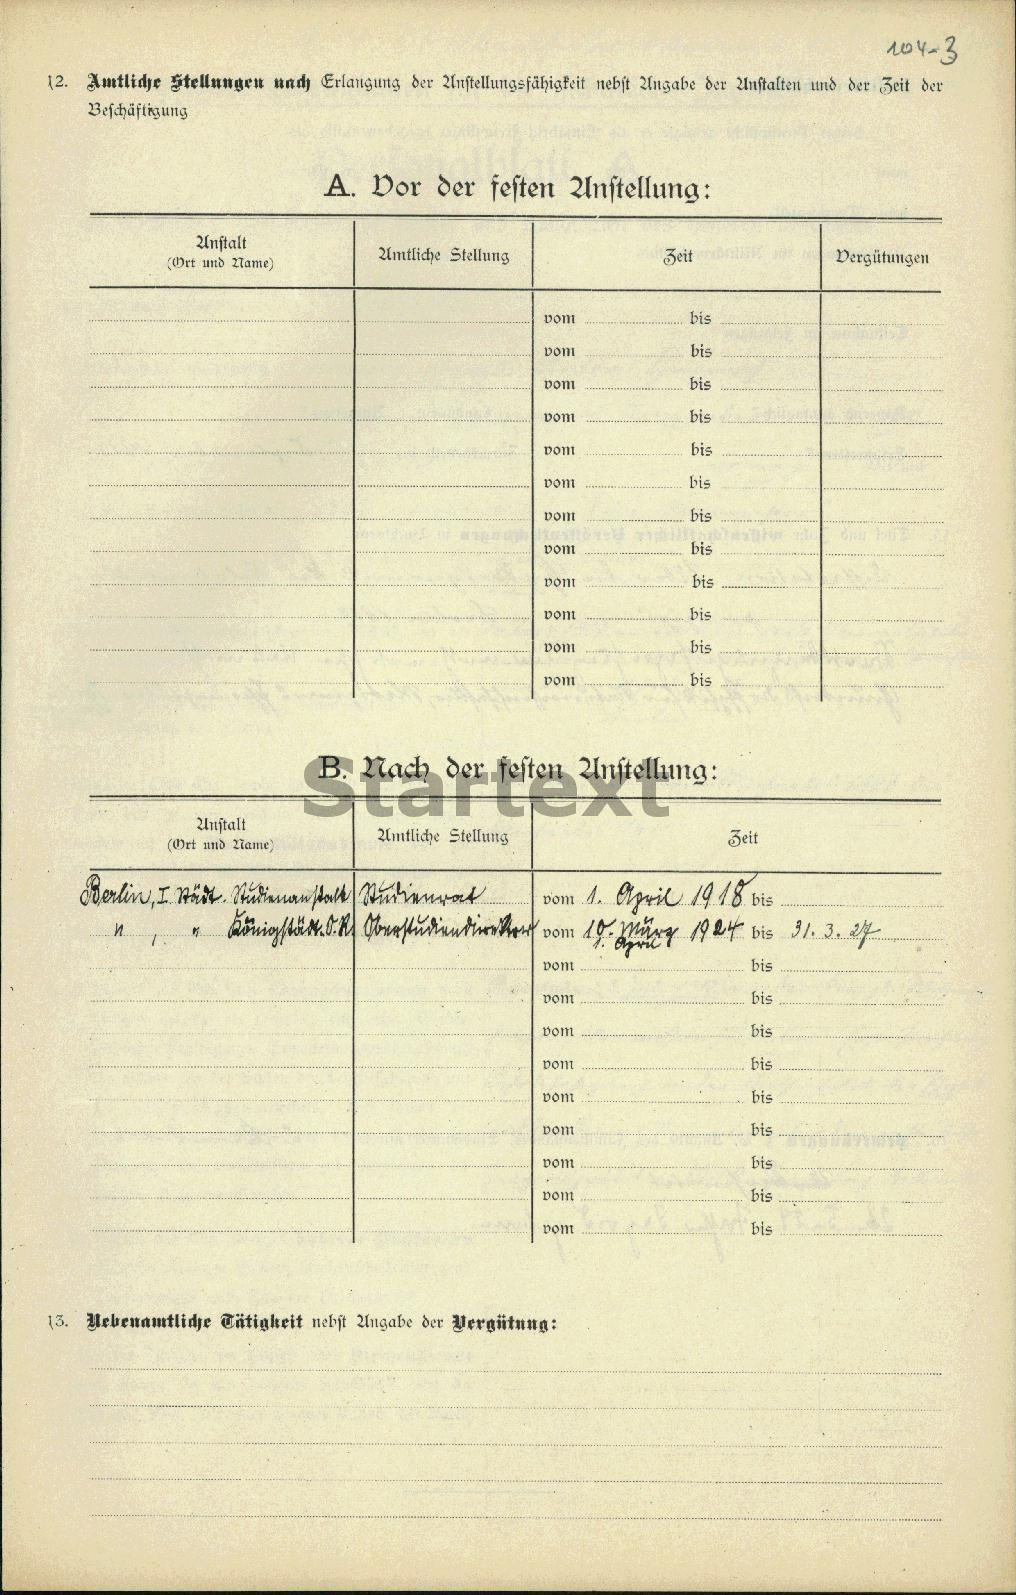 104-3
12. Amtliche Stellungen nach Erlangung der Anstellungsfähigkeit nebst Angabe der Anstalten und der Zeit der
Beschäftigung
A. Vor der festen Anstellung:
Anstalt
(Ort und Name)
Amtliche Stellung
Zeit
Vergütungen
vom bis
vom bis
vom bis
vom bis
vom bis
vom bis
vom bis
vom bis
vom bis
vom bis
vom bis
vom bis
B. Nach der festen Anstellung:
Startext
Anstalt
(Ort und Name)
Amtliche Stellung
Zeit
Berlin, I. Städt. Studienanstalt Studienrat vom 1. April 1918 bis
" , " Königstädt. O.R. Oberstudiendirektor vom 19. März 1924 bis 31. 3. 27
1. April
vom bis
vom bis
vom bis
vom bis
vom bis
vom bis
vom bis
vom bis
vom bis
13. Nebenamtliche Tätigkeit nebst Angabe der Vergütung: